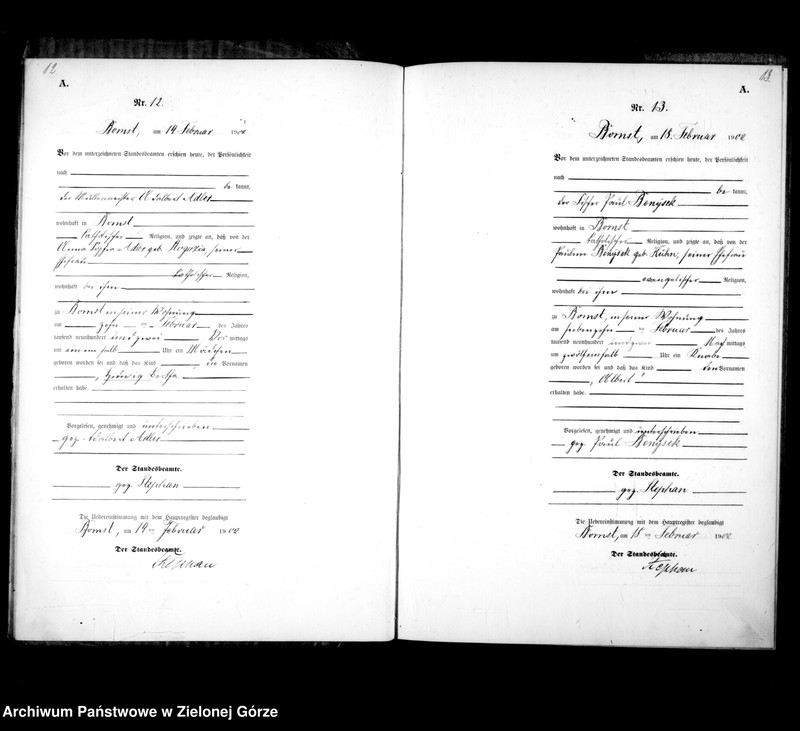 12
A.
Nr. 12.
Bomst, am 14 Februar 1902
Vor dem unterzeichneten Standesbeamten erschien heute, der Persönlichkeit
nach
be kannt,
der Müllermeister Adalbert Adler
wohnhaft in Bomst
katholischer Religion, und zeigte an, daß von der
Anna Adler geb. seiner
Ehefrau
katholischer Religion,
wohnhaft bei ihm
zu Bomst in seiner Wohnung
am zehn ten Februar des Jahres
tausend neunhundert und zwei Vor mittags
um ein ein halb Uhr ein Mädchen
geboren worden sei und daß das Kind die Vornamen
Hedwig Bertha
erhalten habe.
Vorgelesen, genehmigt und unterschrieben
gez. Adalbert Adler
Der Standesbeamte.
gez. Stephan
Die Uebereinstimmung mit dem Hauptregister beglaubigt
Bomst, am 14 ten Februar 1902
Der Standesbeamte.
Stephan
13
A.
Nr. 13.
Bomst, am 18. Februar 1902
Vor dem unterzeichneten Standesbeamten erschien heute, der Persönlichkeit
nach
be kannt,
der Paul Benysek
wohnhaft in Bomst
katholischer Religion, und zeigte an, daß von der
Pauline Benysek geb. Kuhn, seiner Ehefrau
evangelischer Religion,
wohnhaft bei ihm
zu Bomst, in seiner Wohnung
am siebenzehn ten Februar des Jahres
tausend neunhundert und zwei Nach mittags
um zwölfeinhalb Uhr ein Knabe
geboren worden sei und daß das Kind den Vornamen
Albert
erhalten habe.
Vorgelesen, genehmigt und unterschrieben
gez. Paul Benysek
Der Standesbeamte.
gez. Stephan
Die Uebereinstimmung mit dem Hauptregister beglaubigt
Bomst, am 18 ten Februar 1902
Der Standesbeamte.
Stephan
Archiwum Państwowe w Zielonej Górze